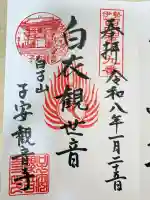 奉拝
令和八年一月二十五日
白衣観世音
白子山
子安観音寺